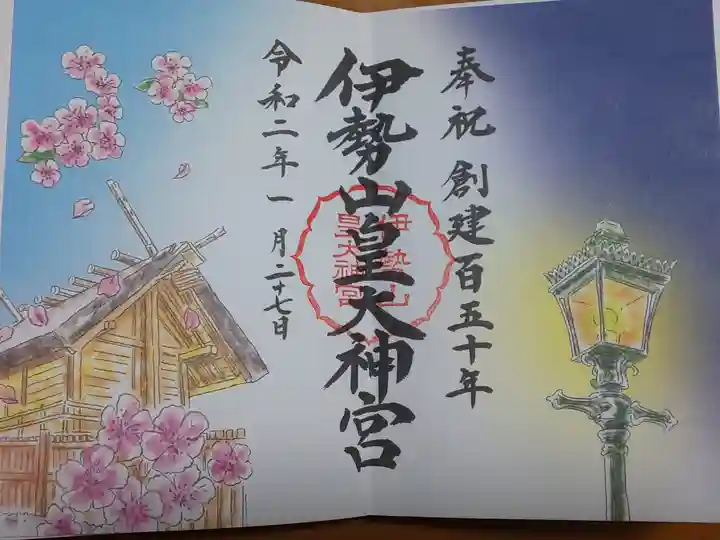 奉祝 創建百五十年
伊勢山皇大神宮
伊勢山
皇大神宮
令和二年一月二十七日